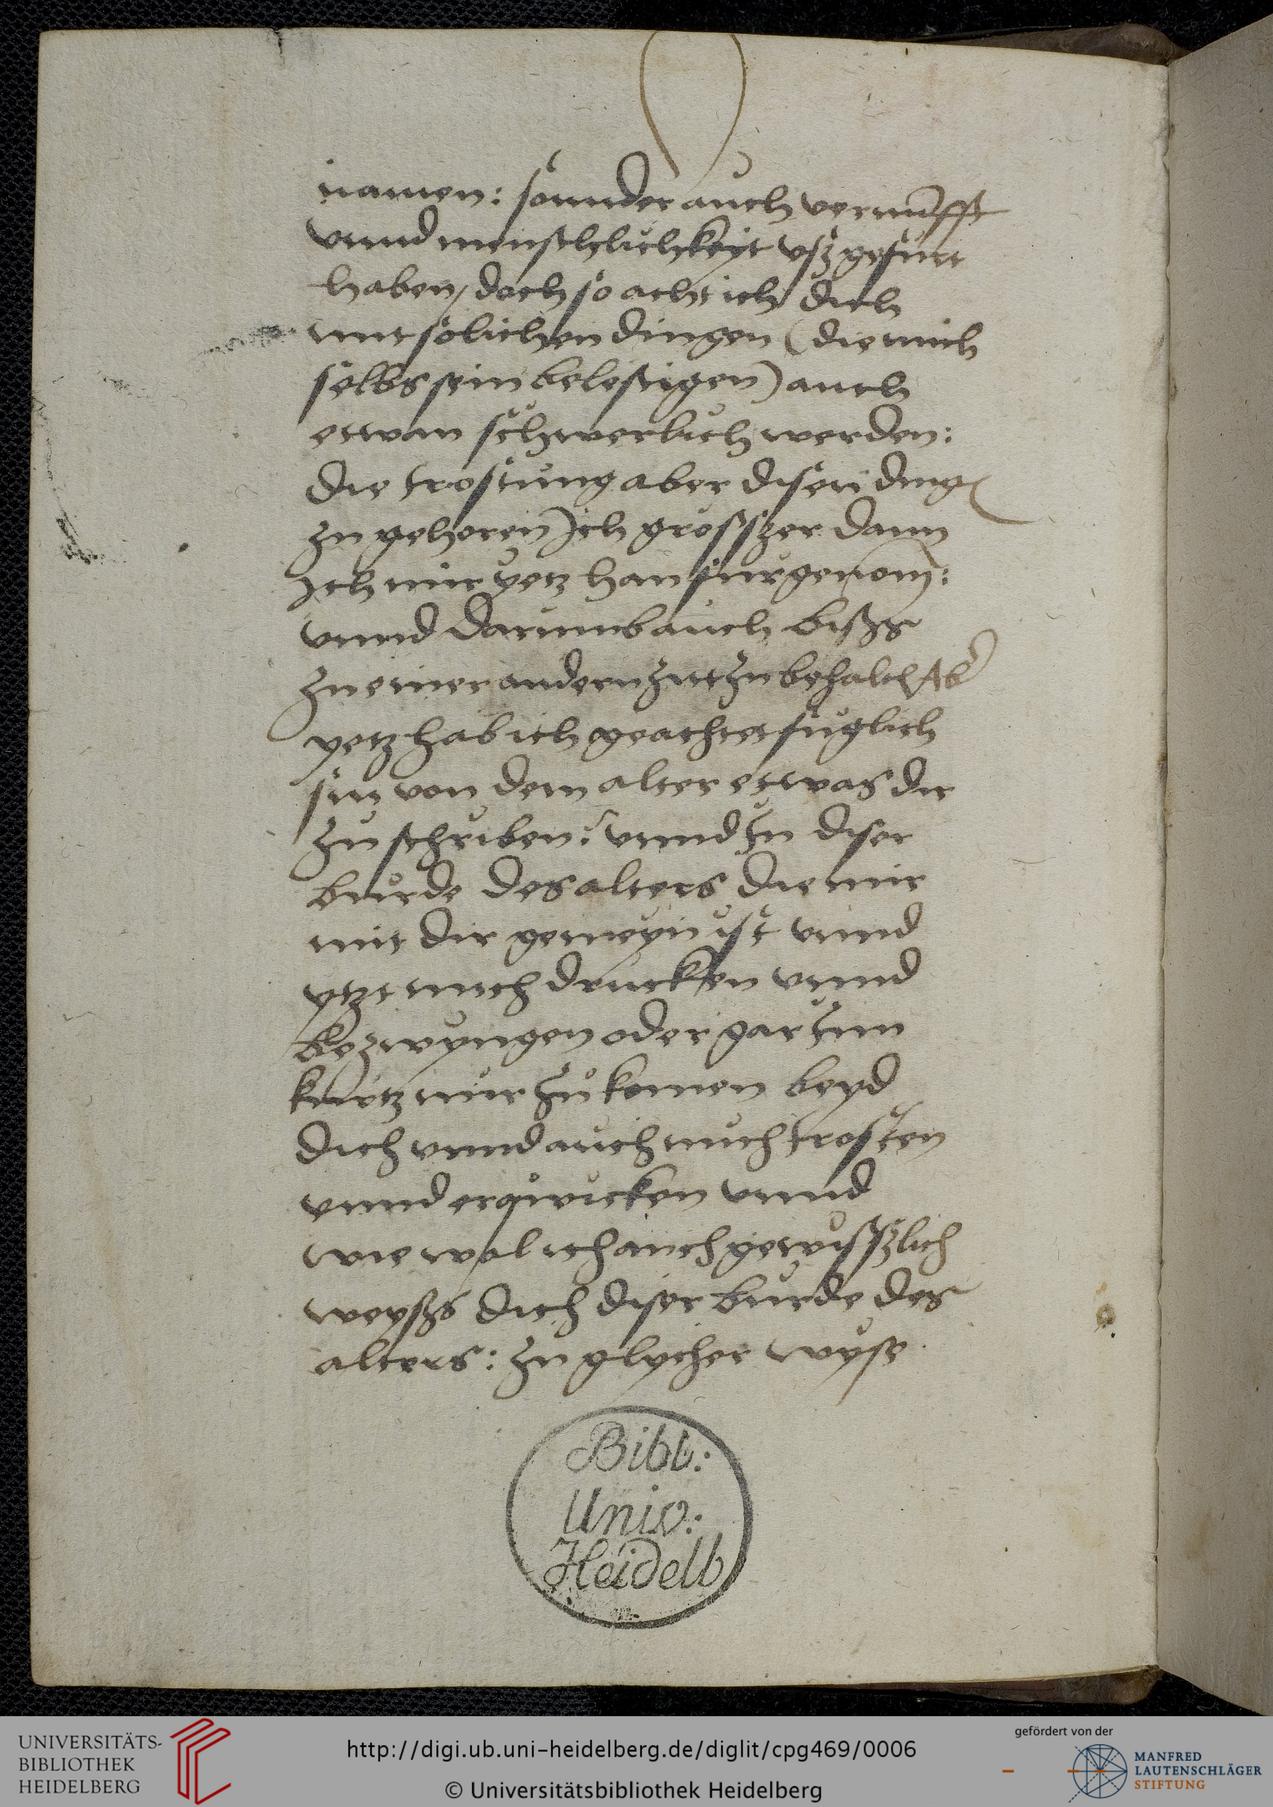 namen: sonnder auch vernu̅fft
vnnd menschlichkeyt vsz gefurt
haben, doch so acht ich dich
mit solichen dingen (die mich
selbs sein belestigen) auch
etwan schwerlich werden:
die trostung aber diser ding
zu gehoren Ich grosszer dann
Ich mir yetz han furgenom̅:
vnnd darumb auch biszs
zu einer andern zitt zu behalt Ab
yetz hab ich geachtet fuglich
sin von dem alter ettwas dir
zu schriben: vnnd In diser
burde des alters die mir
mit dir gemeyn ist vnnd
ytzt mich drucken vnnd
bezwyngen oder gar Inn
kurtz mir zu komen beyd
dich vnnd auch mich trosten
vnnd erqwicken vnnd
wie wol ich auch gewisszlich
weyszs dich diser burde des
alters: zu glycher wyse
Bibl:
Univ:
Heidelb
UNIVERSITÄTS-
BIBLIOTHEK
HEIDELBERG
http://digi.ub.uni-heidelberg.de/diglit/cpg469/0006
© Universitätsbibliothek Heidelberg
gefördert von der
MANFRED
LAUTENSCHLÄGER
STIFTUNG